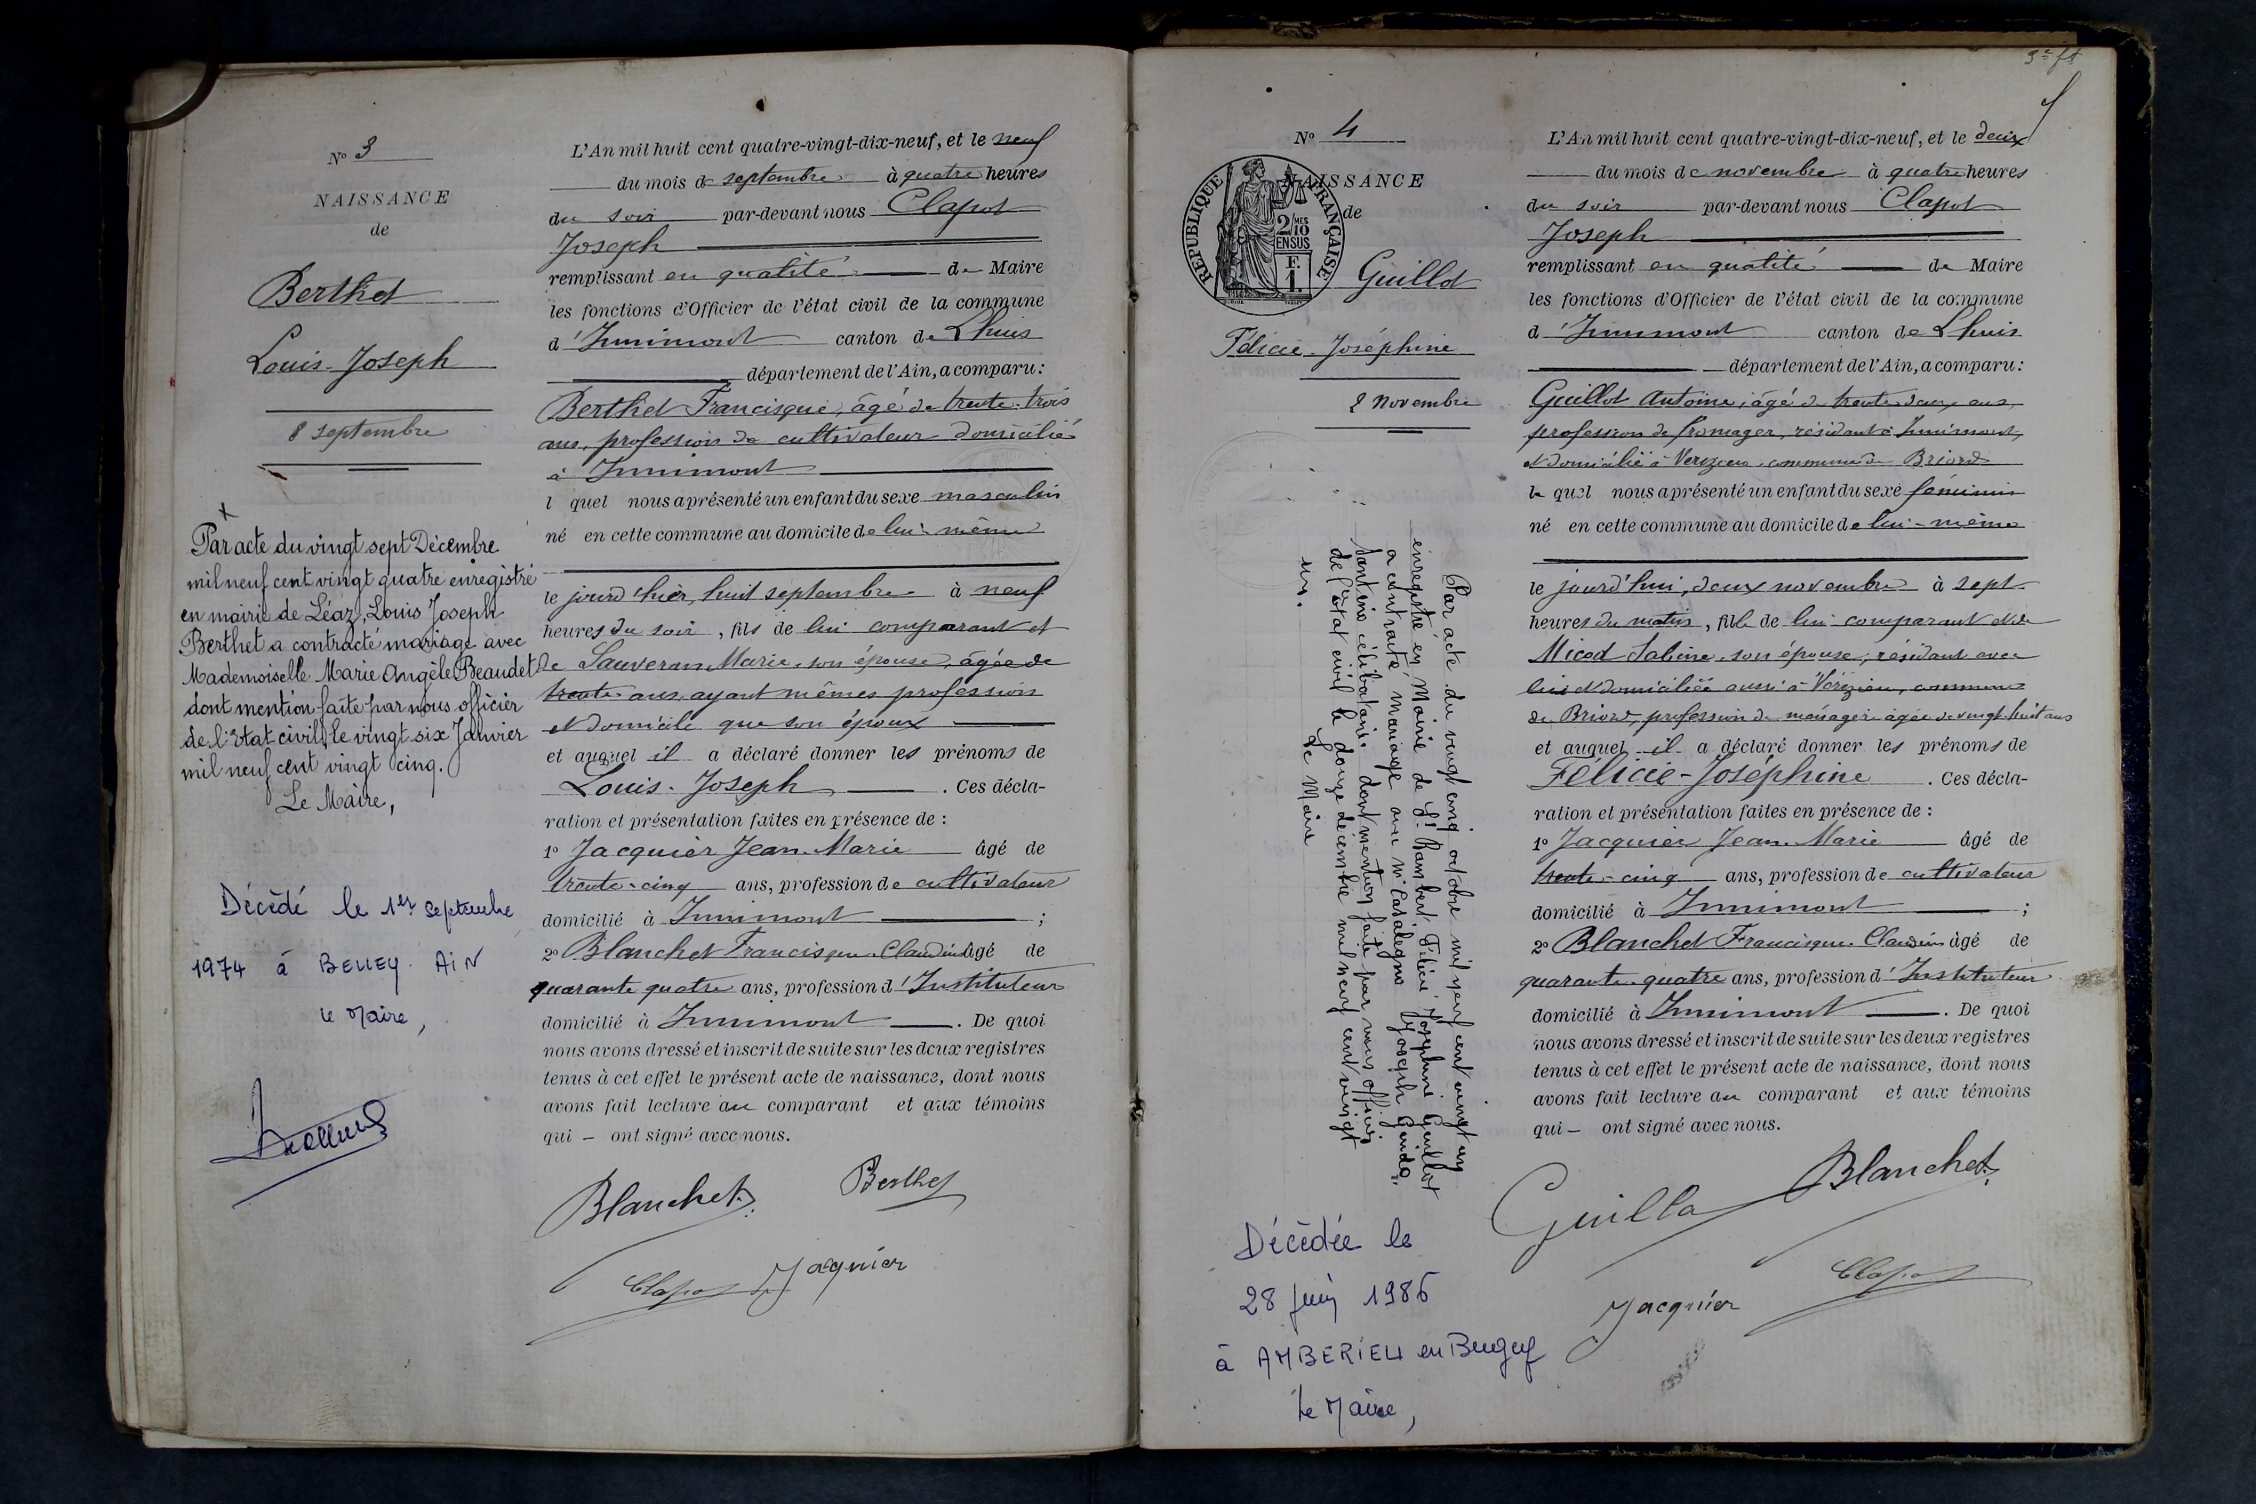 Nº 3
NAISSANCE
de
Berthet
Louis-Joseph
8 septembre
X
Par acte du vingt sept Décembre
mil neuf cent vingt quatre enregistré
en mairie de Léaz, Louis Joseph
Berthet a contracté mariage avec
Mademoiselle Marie Angèle Beaudet
dont mention faite par nous officier
de l'Etat civil, le vingt six Janvier
mil neuf cent vingt cinq.
Le Maire,
Décédé le 1er septembre
1974 à BELLEY. AIN
le Maire,
L'An mil huit cent quatre-vingt-dix-neuf, et le neuf
du mois de septembre à quatre heures
du soir par-devant nous Clapot
Joseph
remplissant en qualité de Maire
les fonctions d'Officier de l'état civil de la commune
d'Innimont canton de Lhuis
département de l'Ain, a comparu:
Berthet Francisque, âgé de trente-trois
ans, profession de cultivateur domicilié
à Innimont
l quel nous a présenté un enfant du sexe masculin
né en cette commune au domicile de lui-même
le jourd'hier, huit septembre à neuf
heures du soir, fils de lui comparant et
de Sauveran Marie, son épouse, âgée de
trente ans, ayant mêmes profession
et domicile que son époux
et auquel il a déclaré donner les prénoms de
Louis-Joseph. Ces décla-
ration et présentation faites en présence de:
1º Jacquier Jean-Marie âgé de
trente-cinq ans, profession de cultivateur
domicilié à Innimont;
2º Blanchet Francisque-Claudin âgé de
quarante quatre ans, profession d'Instituteur
domicilié à Innimont. De quoi
nous avons dressé et inscrit de suite sur les deux registres
tenus à cet effet le présent acte de naissance, dont nous
avons fait lecture au comparant et aux témoins
qui - ont signé avec nous.
Blanchet Berthet
Clapot Jacquier
Nº 4
NAISSANCE
de
RÉPUBLIQUE FRANÇAISE
2/10 MES
EN SUS
F.
1.
Guillot
Félicie-Joséphine
2 Novembre
Par acte du vingt cinq octobre mil neuf cent vingt un
enregistré en Mairie de St Rambert, Félicie Joséphine Guillot
a contracté mariage avec Mr Casalegno Joseph Guido,
dont mention faite par nous officier
de l'état civil le douze décembre mil neuf cent vingt
un. Le Maire
Décédée le
28 Juin 1986
à AMBERIEU en Bugey
le Maire,
L'An mil huit cent quatre-vingt-dix-neuf, et le deux
du mois de novembre à quatre heures
du soir par-devant nous Clapot
Joseph
remplissant en qualité de Maire
les fonctions d'Officier de l'état civil de la commune
d'Innimont canton de Lhuis
département de l'Ain, a comparu:
Guillot Antoine, âgé de trente-deux ans,
profession de fromager, résidant à Innimont,
et domicilié à Vérizieu, commune de Briord
le quel nous a présenté un enfant du sexe féminin
né en cette commune au domicile de lui-même
le jourd'hui, deux novembre à sept
heures du matin, fille de lui comparant et de
Micod Sabine, son épouse, résidant avec
lui et domiciliée aussi à Vérizieu, commune
de Briord, profession de ménagère âgée de vingt-huit ans
et auquel il a déclaré donner les prénoms de
Félicie-Joséphine. Ces décla-
ration et présentation faites en présence de:
1º Jacquier Jean-Marie âgé de
trente-cinq ans, profession de cultivateur
domicilié à Innimont;
2º Blanchet Francisque-Claudin âgé de
quarante-quatre ans, profession d'Instituteur
domicilié à Innimont. De quoi
nous avons dressé et inscrit de suite sur les deux registres
tenus à cet effet le présent acte de naissance, dont nous
avons fait lecture au comparant et aux témoins
qui - ont signé avec nous.
Guillot Blanchet
Jacquier Clapot